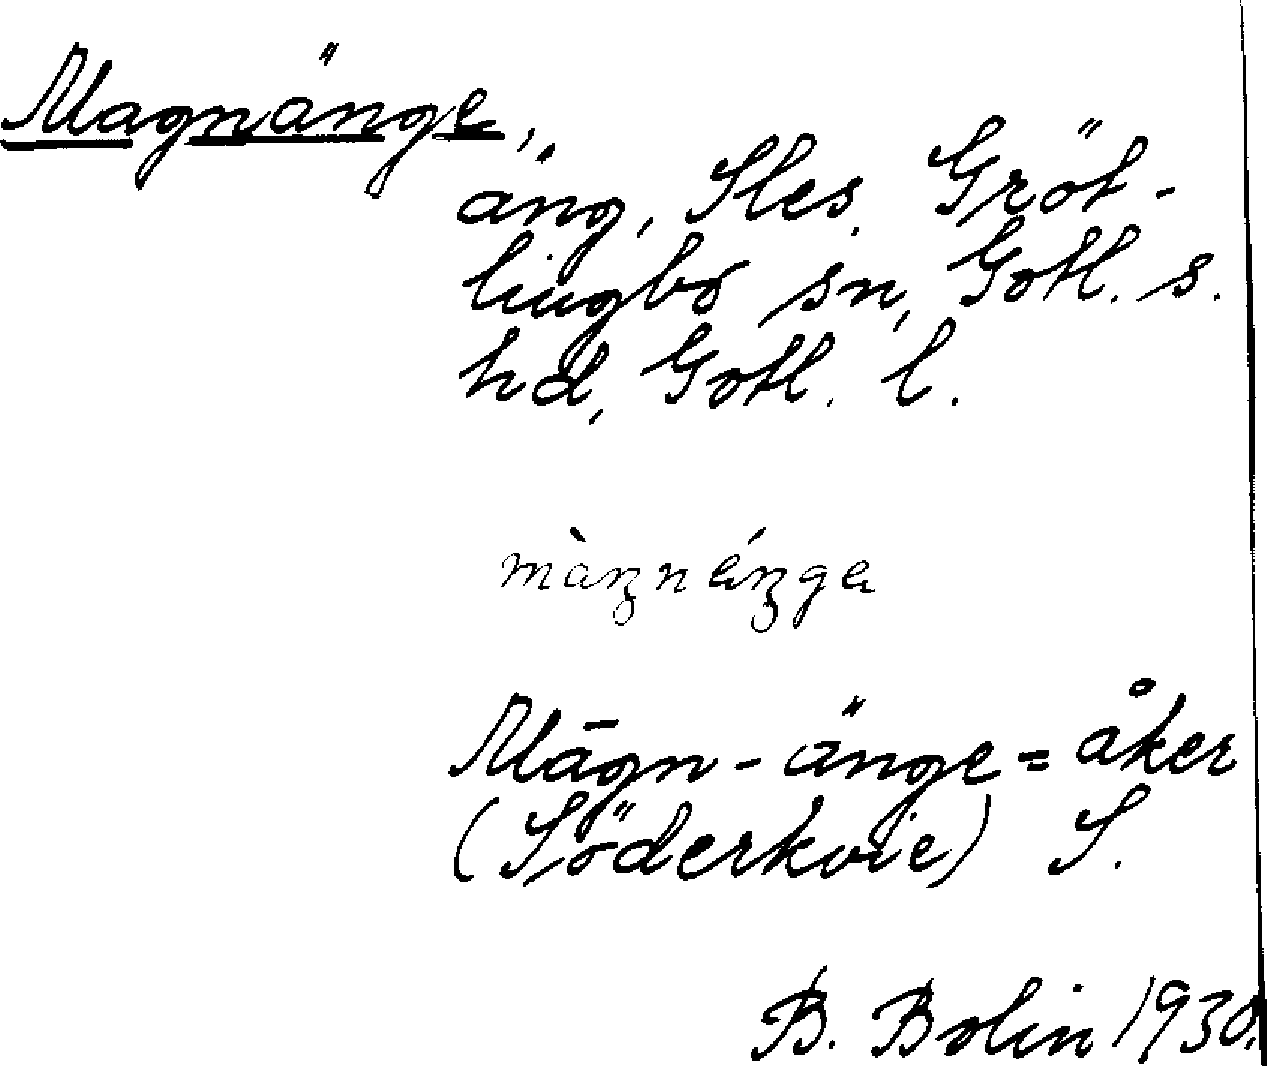 Magnänge,
äng, Sles, Gröt-
lingbo sn, Gotl. s.
hd, Gotl. l.
màŋnéŋge
Māgn-änge = åker
(Söderkvie) S.
B. Bolin 1930.